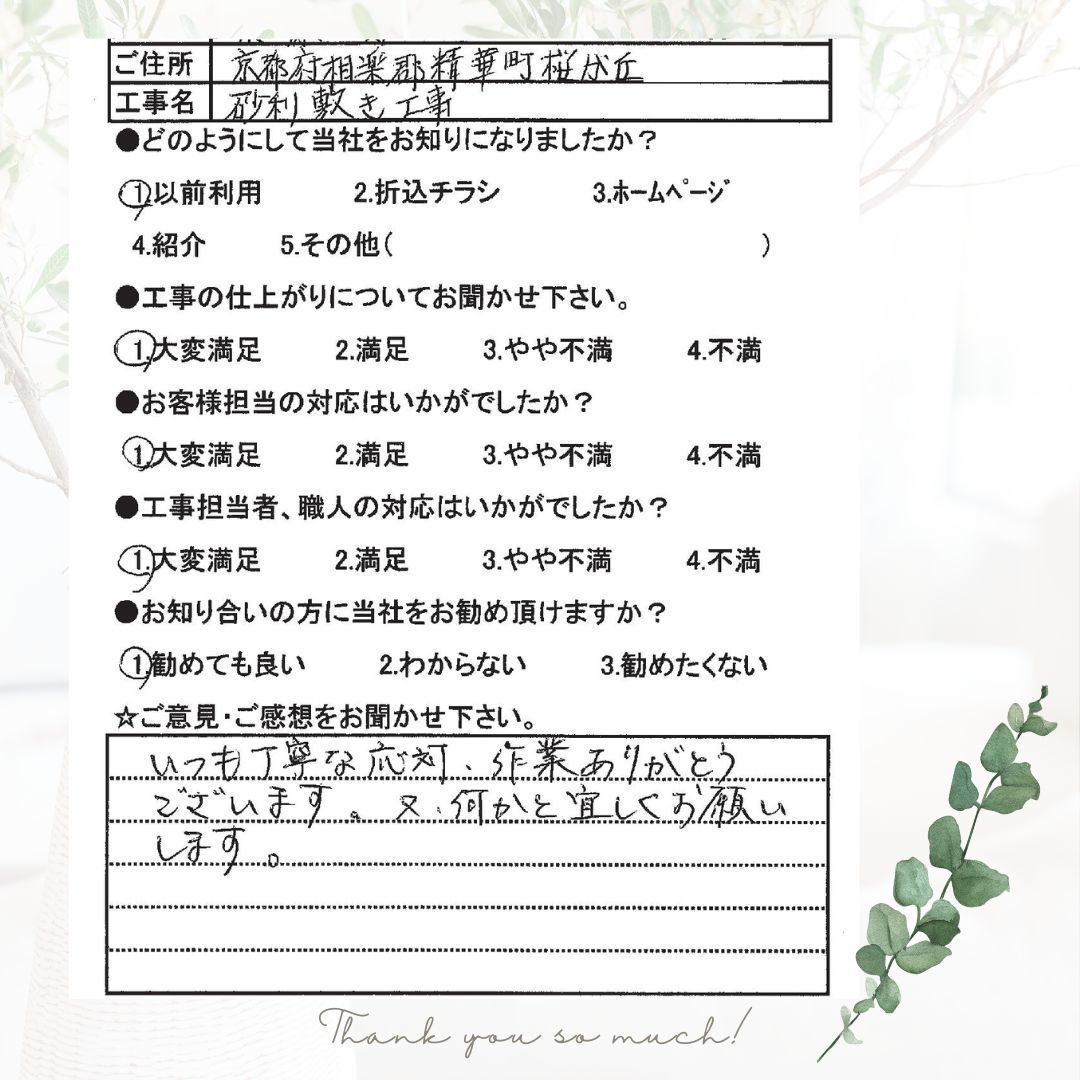 ご住所 京都府相楽郡精華町桜が丘
工事名 砂利敷き工事
●どのようにして当社をお知りになりましたか？
1.以前利用 2.折込チラシ 3.ホームページ
4.紹介 5.その他( )
●工事の仕上がりについてお聞かせ下さい。
1.大変満足 2.満足 3.やや不満 4.不満
●お客様担当の対応はいかがでしたか？
1.大変満足 2.満足 3.やや不満 4.不満
●工事担当者、職人の対応はいかがでしたか？
1.大変満足 2.満足 3.やや不満 4.不満
●お知り合いの方に当社をお勧め頂けますか？
1.勧めても良い 2.わからない 3.勧めたくない
☆ご意見・ご感想をお聞かせ下さい。
いつも丁寧な応対、作業ありがとう
ございます。又、何かと宜しくお願い
します。
Thank you so much!